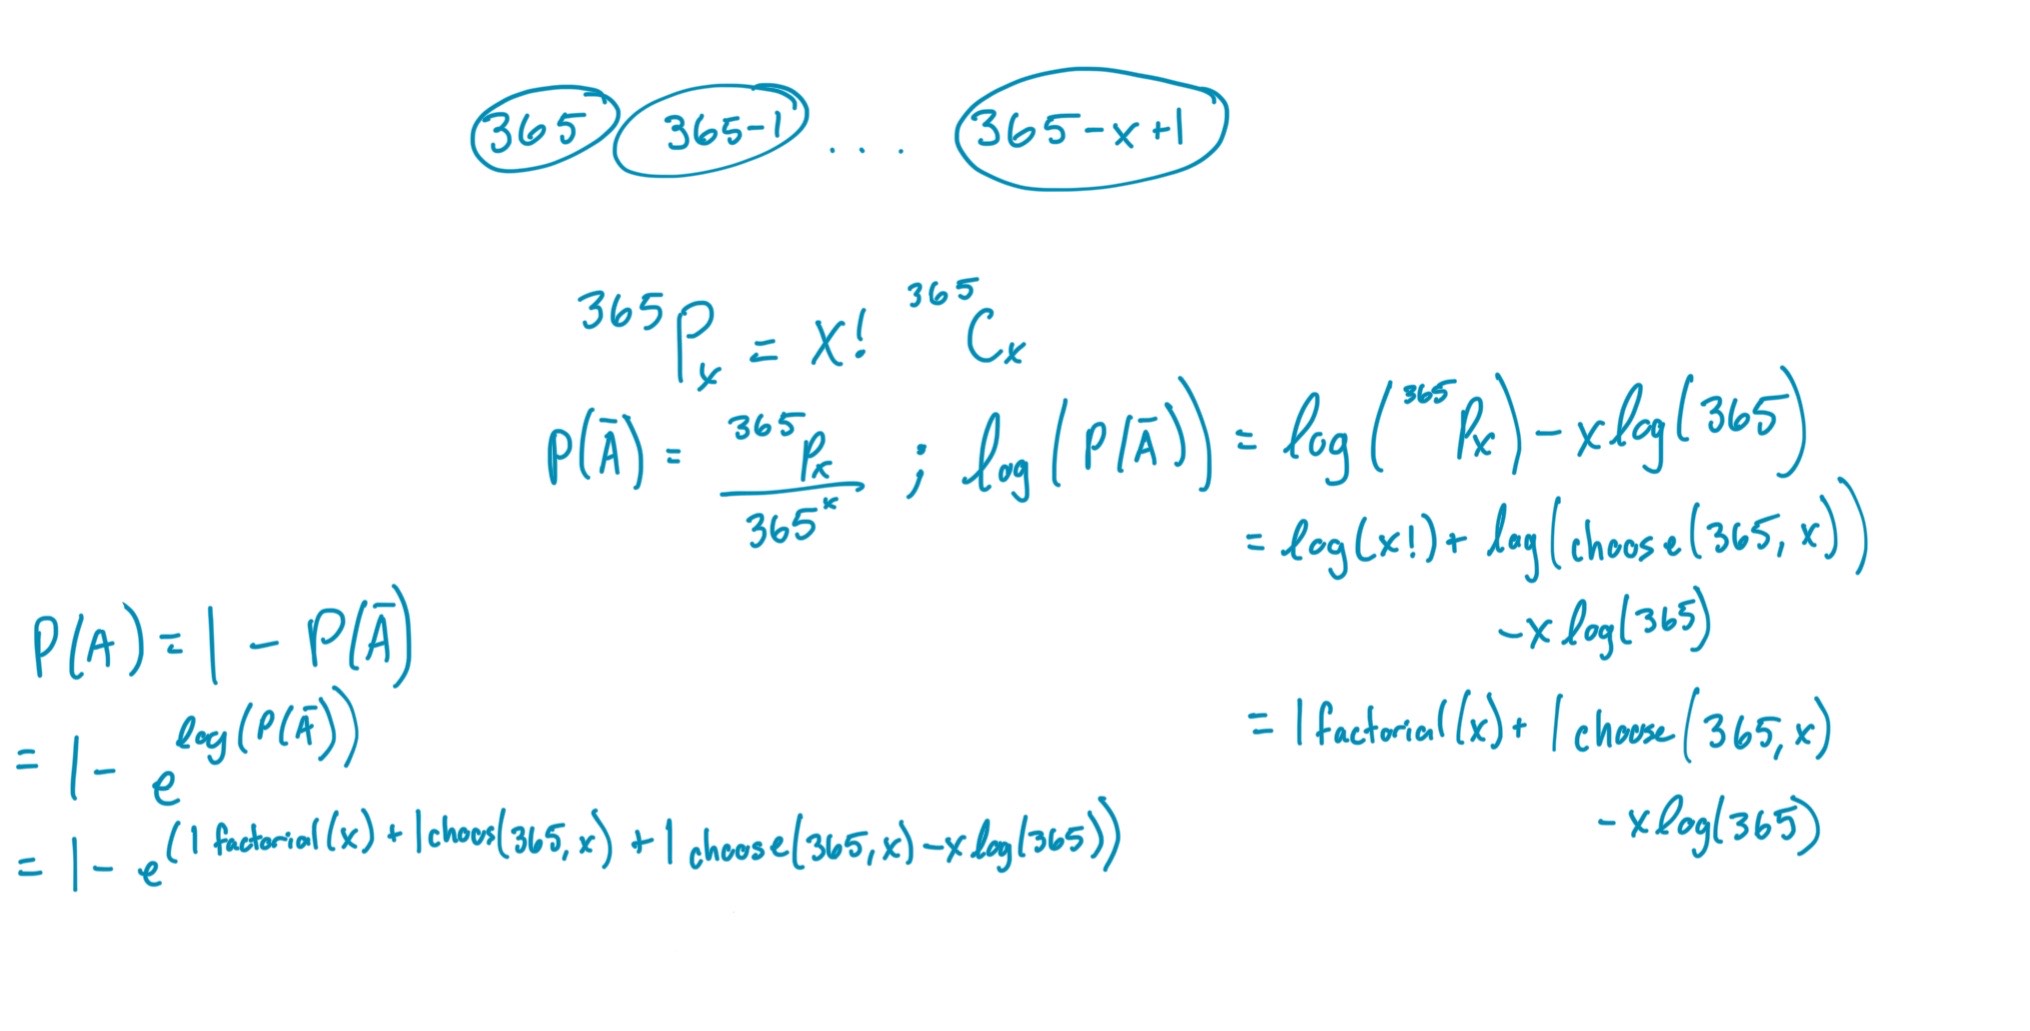 365 365-1 ... 365-x+1
³⁶⁵Pₓ = x! ³⁶⁵Cₓ
P(Ā) = ³⁶⁵Pₓ / 365ˣ ; log(P(Ā)) = log(³⁶⁵Pₓ) - x log(365)
= log(x!) + log(choose(365, x))
- x log(365)
= lfactorial(x) + lchoose(365, x)
- x log(365)
P(A) = 1 - P(Ā)
= 1 - e^log(P(Ā))
= 1 - e^(lfactorial(x) + lchoos(365, x) + lchoose(365, x) - x log(365))